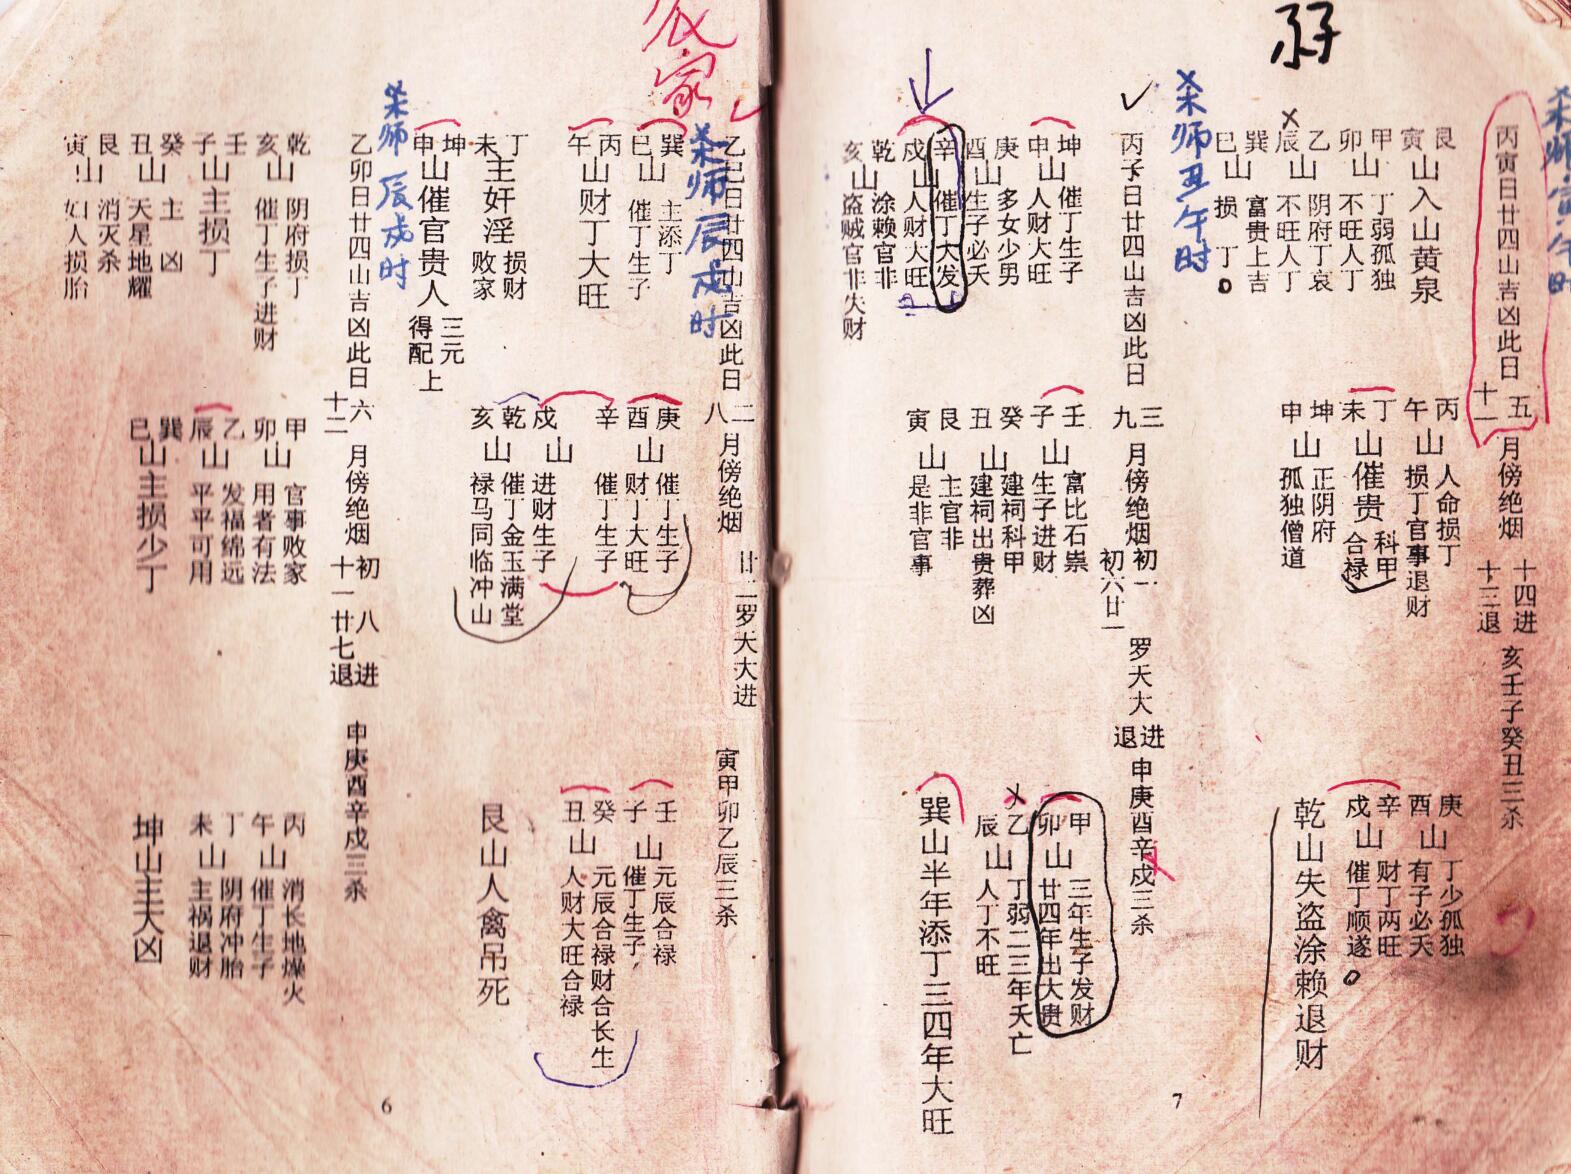 弱
杀师
午时
丙寅日廿四山吉凶此日
五十一
月傍绝烟
十四进
十三退
亥壬子癸丑三杀
艮寅山入山黄泉
甲卯山
丁弱孤独
不旺人丁
乙辰山
阴府丁哀
不旺人丁
巽巳山
富贵上吉
损丁
丙午山
人命损丁
损丁官事退财
丁未山催贵
科甲
合禄
坤申山
正阴府
孤独僧道
庚酉山
丁少孤独
有子必夭
辛戍山
财丁两旺
催丁顺遂
乾山失盗涂赖退财
杀师丑午时
丙子日廿四山吉凶此日
三九
月傍绝烟
初一
初六廿一
罗天大
进退
申庚酉辛戍三杀
坤申山
催丁生子
人财大旺
庚酉山
多女少男
生子必夭
辛戍山
催丁大发
人财大旺
乾亥山
涂赖官非
盗贼官非失财
壬子山
富比石崇
生子进财
癸丑山
建祠科甲
建祠出贵葬凶
艮寅山
主官非
是非官事
甲卯山
三年生子发财
廿四年出大贵
乙辰山
丁弱二三年夭亡
人丁不旺
巽山半年添丁三四年大旺
7
辰家
杀师辰戍时
乙巳日廿四山吉凶此日
二八
月傍绝烟
廿二罗天大进
寅甲卯乙辰三杀
巽巳山
主添丁
催丁生子
丙午山财丁大旺
丁未主奸淫
损财
败家
坤申山催官贵人
三元
得配上
庚酉山
催丁生子
财丁大旺
辛戍山
催丁生子
进财生子
乾亥山
催丁金玉满堂
禄马同临冲山
壬子山
元辰合禄
催丁生子
癸丑山
元辰合禄财合长生
人财大旺合禄
艮山人禽吊死
杀师辰戍时
乙卯日廿四山吉凶此日
六十二
月傍绝烟
初八进
十一廿七退
申庚酉辛戍三杀
乾亥山
阴府损丁
催丁生子进财
壬子山主损丁
癸丑山
主凶
天星地耀
艮寅山
消灭杀
妇人损胎
甲卯山
官事败家
用者有法
乙辰山
发福绵远
平平可用
巽巳山主损少丁
丙午山
消长地燥火
催丁生子
丁未山
阴府冲胎
主祸退财
坤山主大凶
6